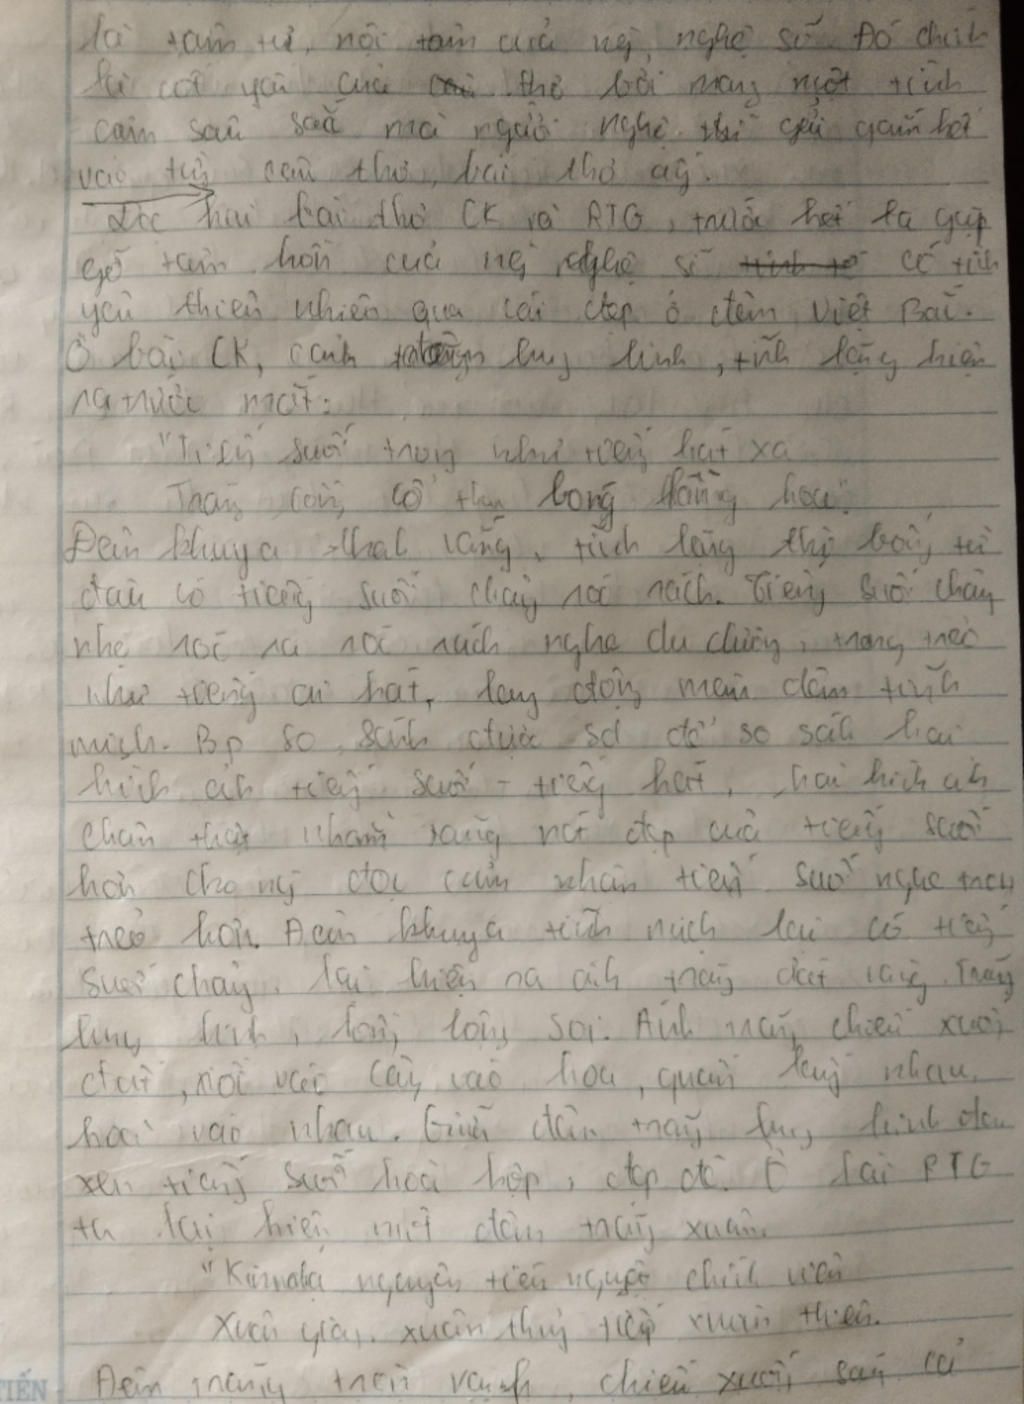 là tâm tư, nội tâm của ng nghệ sĩ. Đó chính
là cốt yếu của thơ bởi mang một tình
cảm sâu sắc mà người nghệ sĩ gửi gắm hết
vào từng câu thơ, bài thơ ấy.
Đọc hai bài thơ CK và RTG, trước hết ta gặp
gỡ tâm hồn của ng nghệ sĩ có tình
yêu thiên nhiên qua cái đẹp ở đêm Việt Bắc.
Ở bài CK, cảnh lung linh, tĩnh lặng hiện
ra trước mắt:
"Tiếng suối trong như tiếng hát xa
Trăng lồng cổ thụ bóng lồng hoa"
Đêm khuya thật vắng, tĩnh lặng thì bỗng từ
đâu có tiếng suối chảy róc rách. Tiếng suối chảy
nhẹ róc ra róc rách nghe du dương, trong trẻo
như tiếng ai hát, lay động màn đêm tĩnh
mịch. Bp so sánh được sd để so sánh hai
hình ảnh tiếng suối - tiếng hát, hai hình ảnh
chân thật nhằm nét đẹp của tiếng suối
hơn cho ng đọc cảm nhận tiếng suối nghe trong
trẻo hơn. Đêm khuya tĩnh mịch lại có tiếng
suối chảy, lại hiện ra ánh trăng dát vàng. Trăng
lung linh, lồng lộng soi. Ánh trăng chiếu xuống
đất, rồi vào cây, vào hoa, quấn lấy nhau,
hoà vào nhau. Giữa đêm trăng lung linh đan
xen tiếng suối hoà hợp, đẹp đẽ. Ở bài RTG
ta lại hiện một đêm trăng xuân.
"Kim dạ nguyên tiêu nguyệt chính viên
Xuân giang xuân thuỷ tiếp xuân thiên.
Đêm trăng tròn vạnh, chiếu xuống sáng cả
TIẾN